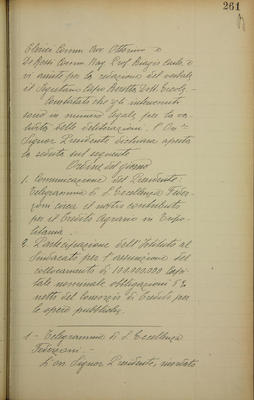 261
Comm. Avv. Ottorino e
De Rossi Comm. Rag. Prof. Biagio
vi assiste per la redazione del verbale
il Segretario Capo Beretta Dott.
Constatato che gli intervenuti
sono in numero legale per la va-
lidità delle deliberazioni, l'On.
Signor Presidente dichiara aperta
la seduta sul seguente
Ordine del giorno
1. Comunicazione del Presidente
Telegramma di S. Eccellenza Feder-
zoni circa il nostro contributo
per il Credito Agrario in Tripo-
litania.
2. Partecipazione dell'Istituto al
Sindacato per l'assunzione del
collocamento di 100.000.000 capi-
tale nominale obbligazioni 5%
nette del Consorzio di Credito per
le opere pubbliche.
1 - Telegramma di S. Eccellenza
Federzoni. -
L'on. Signor Presidente, ricordato